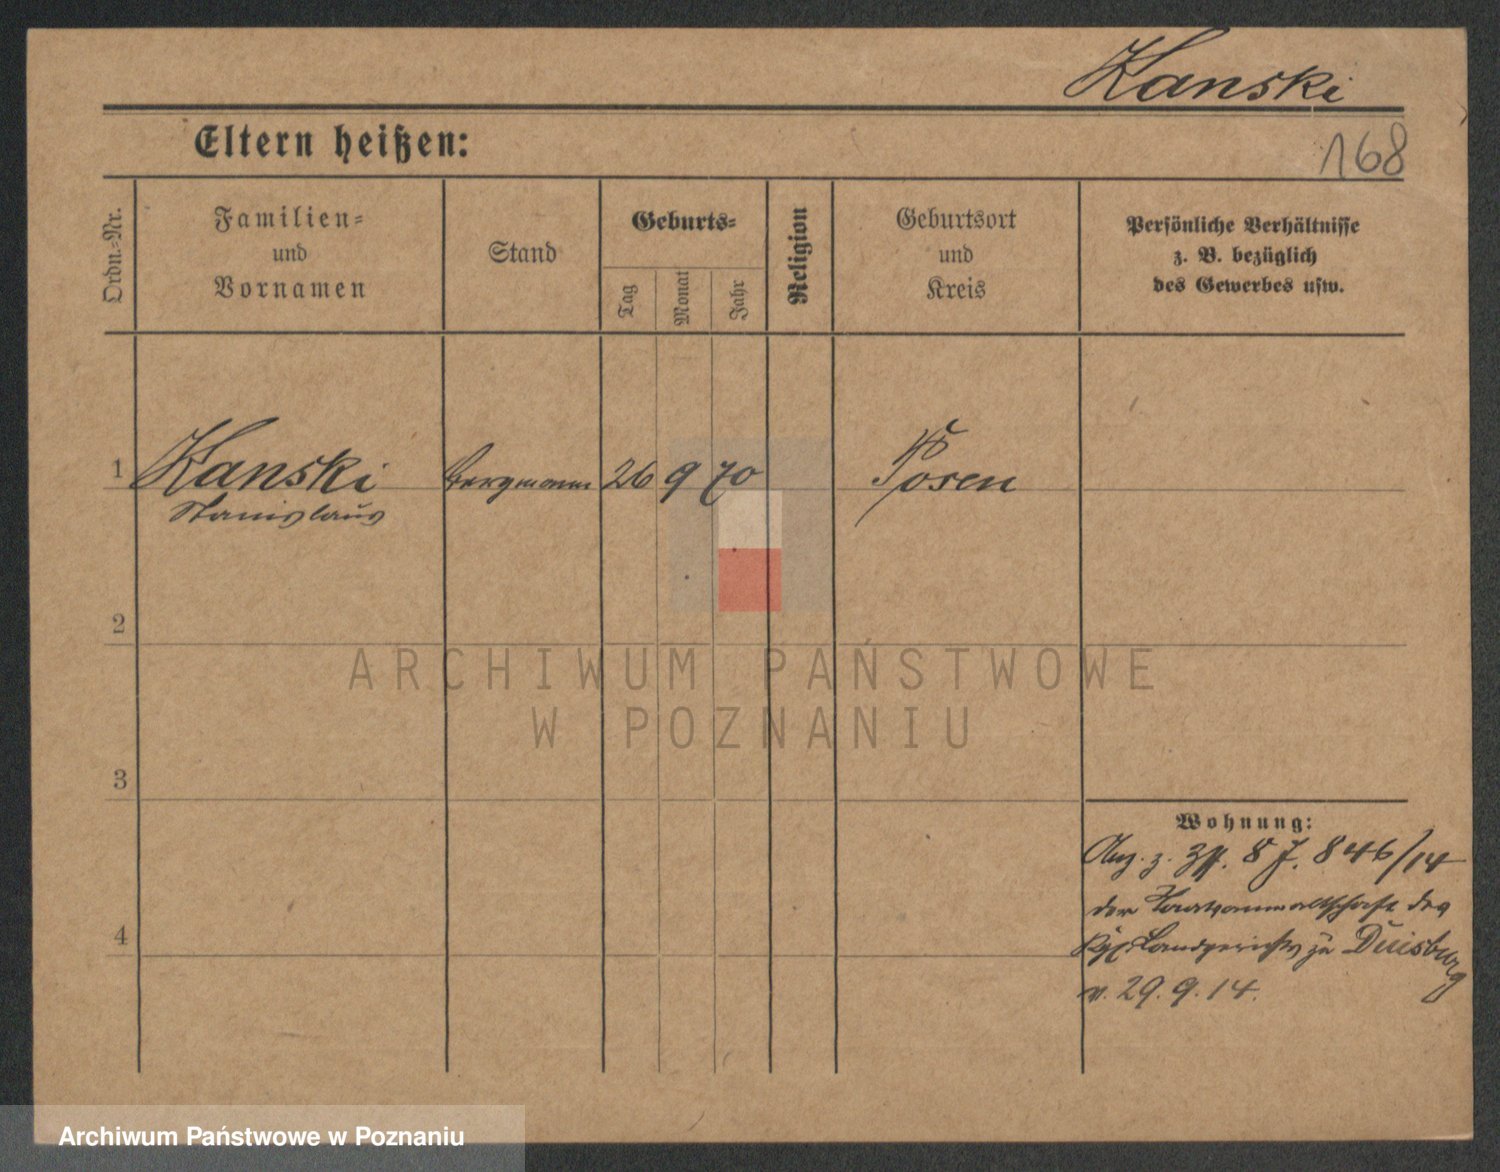 Kanski
Eltern heißen:
168
Ordn.-Nr.
Familien-
und
Vornamen
Stand
Geburts-
Tag
Monat
Jahr
Religion
Geburtsort
und
Kreis
Persönliche Verhältnisse
z. B. bezüglich
des Gewerbes usw.
1 Kanski Bergmann 26 9 70 Posen
Stanislaus
2
ARCHIWUM PAŃSTWOWE
W POZNANIU
3
Wohnung:
z. 8 J. 846/14
der Staatsanwaltschaft des
4
Kgl. Landgerichts zu Duisburg
v. 29.9.14.
Archiwum Państwowe w Poznaniu